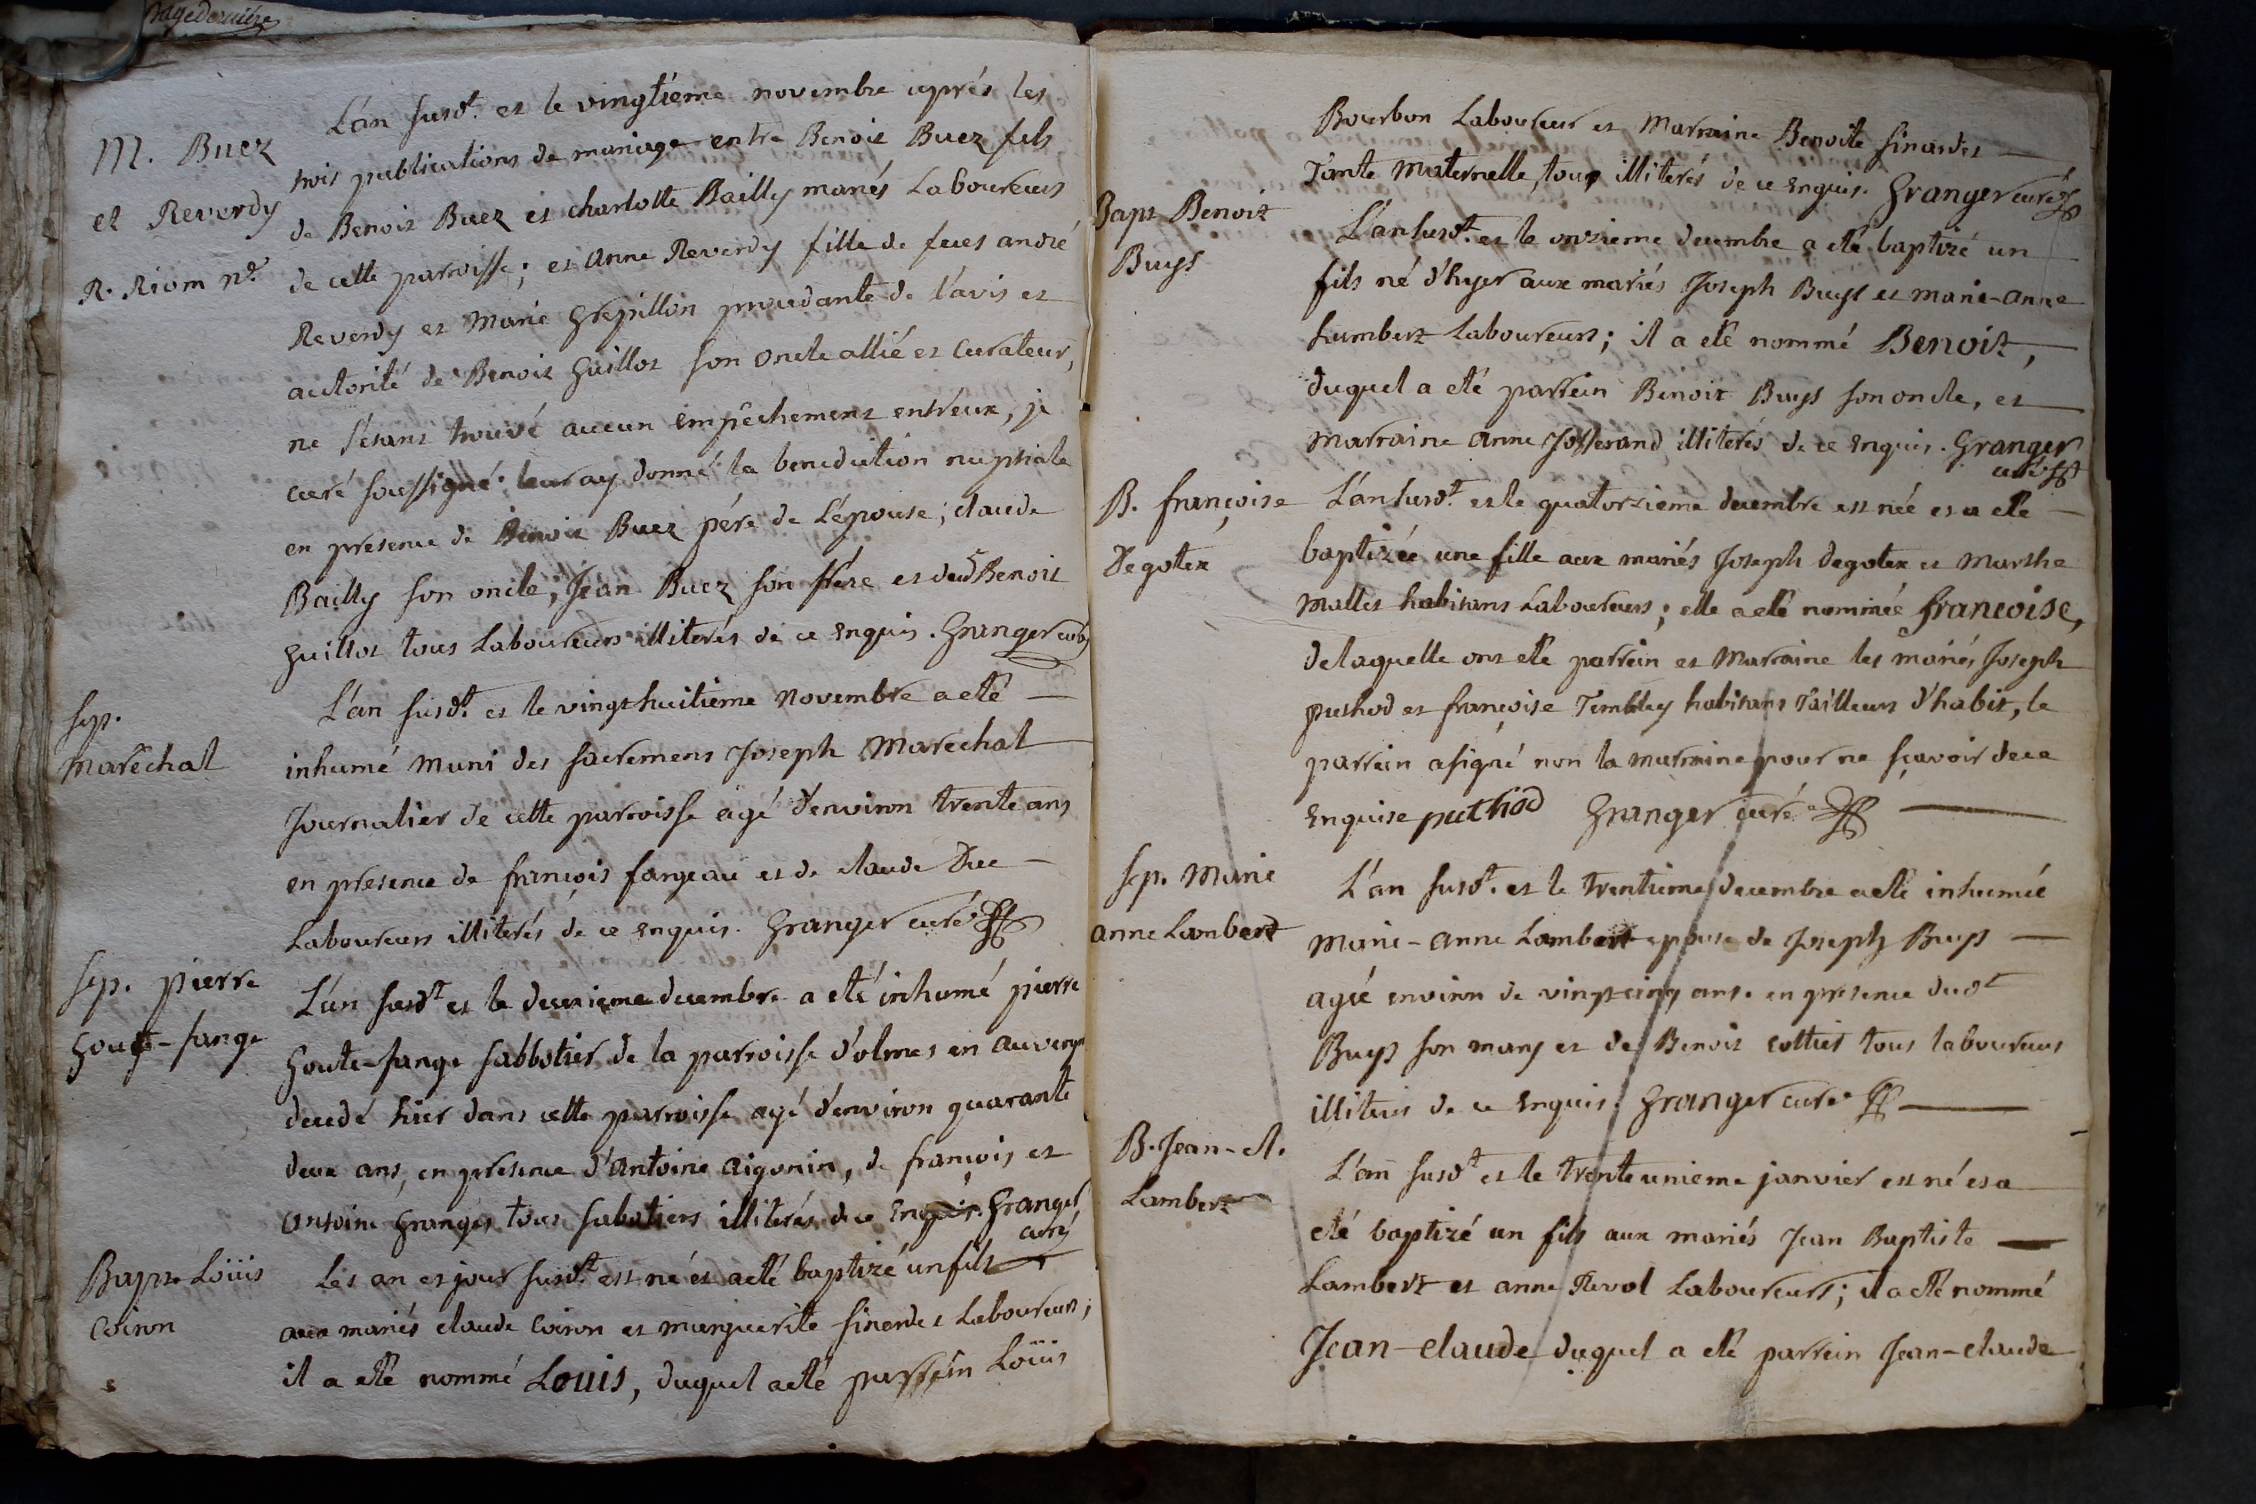 page derniére
M. Buez
et Reverdy
R. Riom nre
L'an susdt. et le vingtiéme novembre aprés les
trois publications de mariage entre Benoit Buez fils
de Benoit Buez et charlotte Bailly mariés Laboureurs
de cette parroisse; et Anne Reverdy fille de feues andré
Reverdy et Marie Grepillon procedante de l'avis et
autorité de Benoit Guillot son oncle allié et Curateur,
ne s'etant trouvé aucun empêchement entr'eux, je
curé soussigné leur ay donné la benediction nuptiale
en presence de Benoit Buez pére de L'epouse; claude
Bailly son oncle; Jean Buez son frére et dudt Benoit
Guillot tous Laboureurs illiterés de ce enquis. Granger curé
sep.
maréchal
L'an susdt. et le vingt huitieme novembre a eté
inhumé muni des sacremens Joseph Maréchal
Journalier de cette parroisse agé d'environ trente ans
en presence de françois fargeau et de claude Duc
Laboureurs illiterés de ce enquis. Granger curé
sep. pierre
Gout-fange
L'an susdt et le deuxieme decembre a eté inhumé pierre
Goute-fange sabbotier de la parroisse d'olmes en auvergne
decedé hier dans cette parroisse agé d'environ quarante
deux ans, en presence d'Antoine aigonin, de françois et
antoine Granges tous sabotiers illiterés de ce enquis. Granger
curé
Bapt. Loüis
Coiron
Les an et jour susdt. est né et a eté baptizé un fils
aux mariés claude Coiron et marguerite finardet Laboureurs;
il a eté nommé Louis, duquel a eté parrein Loüis
Bourbon Laboureur et Marraine Benoite finardet
Tante Maternelle, tous illiterés de ce enquis. Granger curé
Bapt Benoit
Buys
L'an susdt. et le onzieme decembre a eté baptizé un
fils né d'hyer aux mariés Joseph Buys et marie-anne
Lambert Laboureurs; il a eté nommé Benoit,
duquel a eté parrein Benoit Buys son oncle, et
marraine anne Josserand illiterés de ce enquis. Granger
curé
B. françoise
Degotex
L'an susdt et le quatorzieme decembre est née et a eté
baptizée une fille aux mariés Joseph degotex et Marthe
mallet habitans Laboureurs; elle a eté nommée françoise,
de laquelle ont eté parrein et Marraine les mariés Joseph
puthod et françoise Tembley habitans Tailleurs d'habit, le
parrein a signé non la marraine pour ne sçavoir de ce
enquise puthod Granger curé
sep. Marie
anne Lambert
L'an susdt. et le trentieme decembre a eté inhumée
Marie-anne Lambert epouse de Joseph Buys
agée environ de vingt-cinq ans. en presence dudt
Buys son mary et de Benoit cottiet tous laboureurs
illiterés de ce enquis. Granger curé
B. Jean-cl.
Lambert
L'an susdt et le trente unieme janvier est né et a
eté baptizé un fils aux mariés Jean Baptiste
Lambert et anne Revol Laboureurs; il a eté nommé
Jean-claude duquel a eté parrein Jean-claude